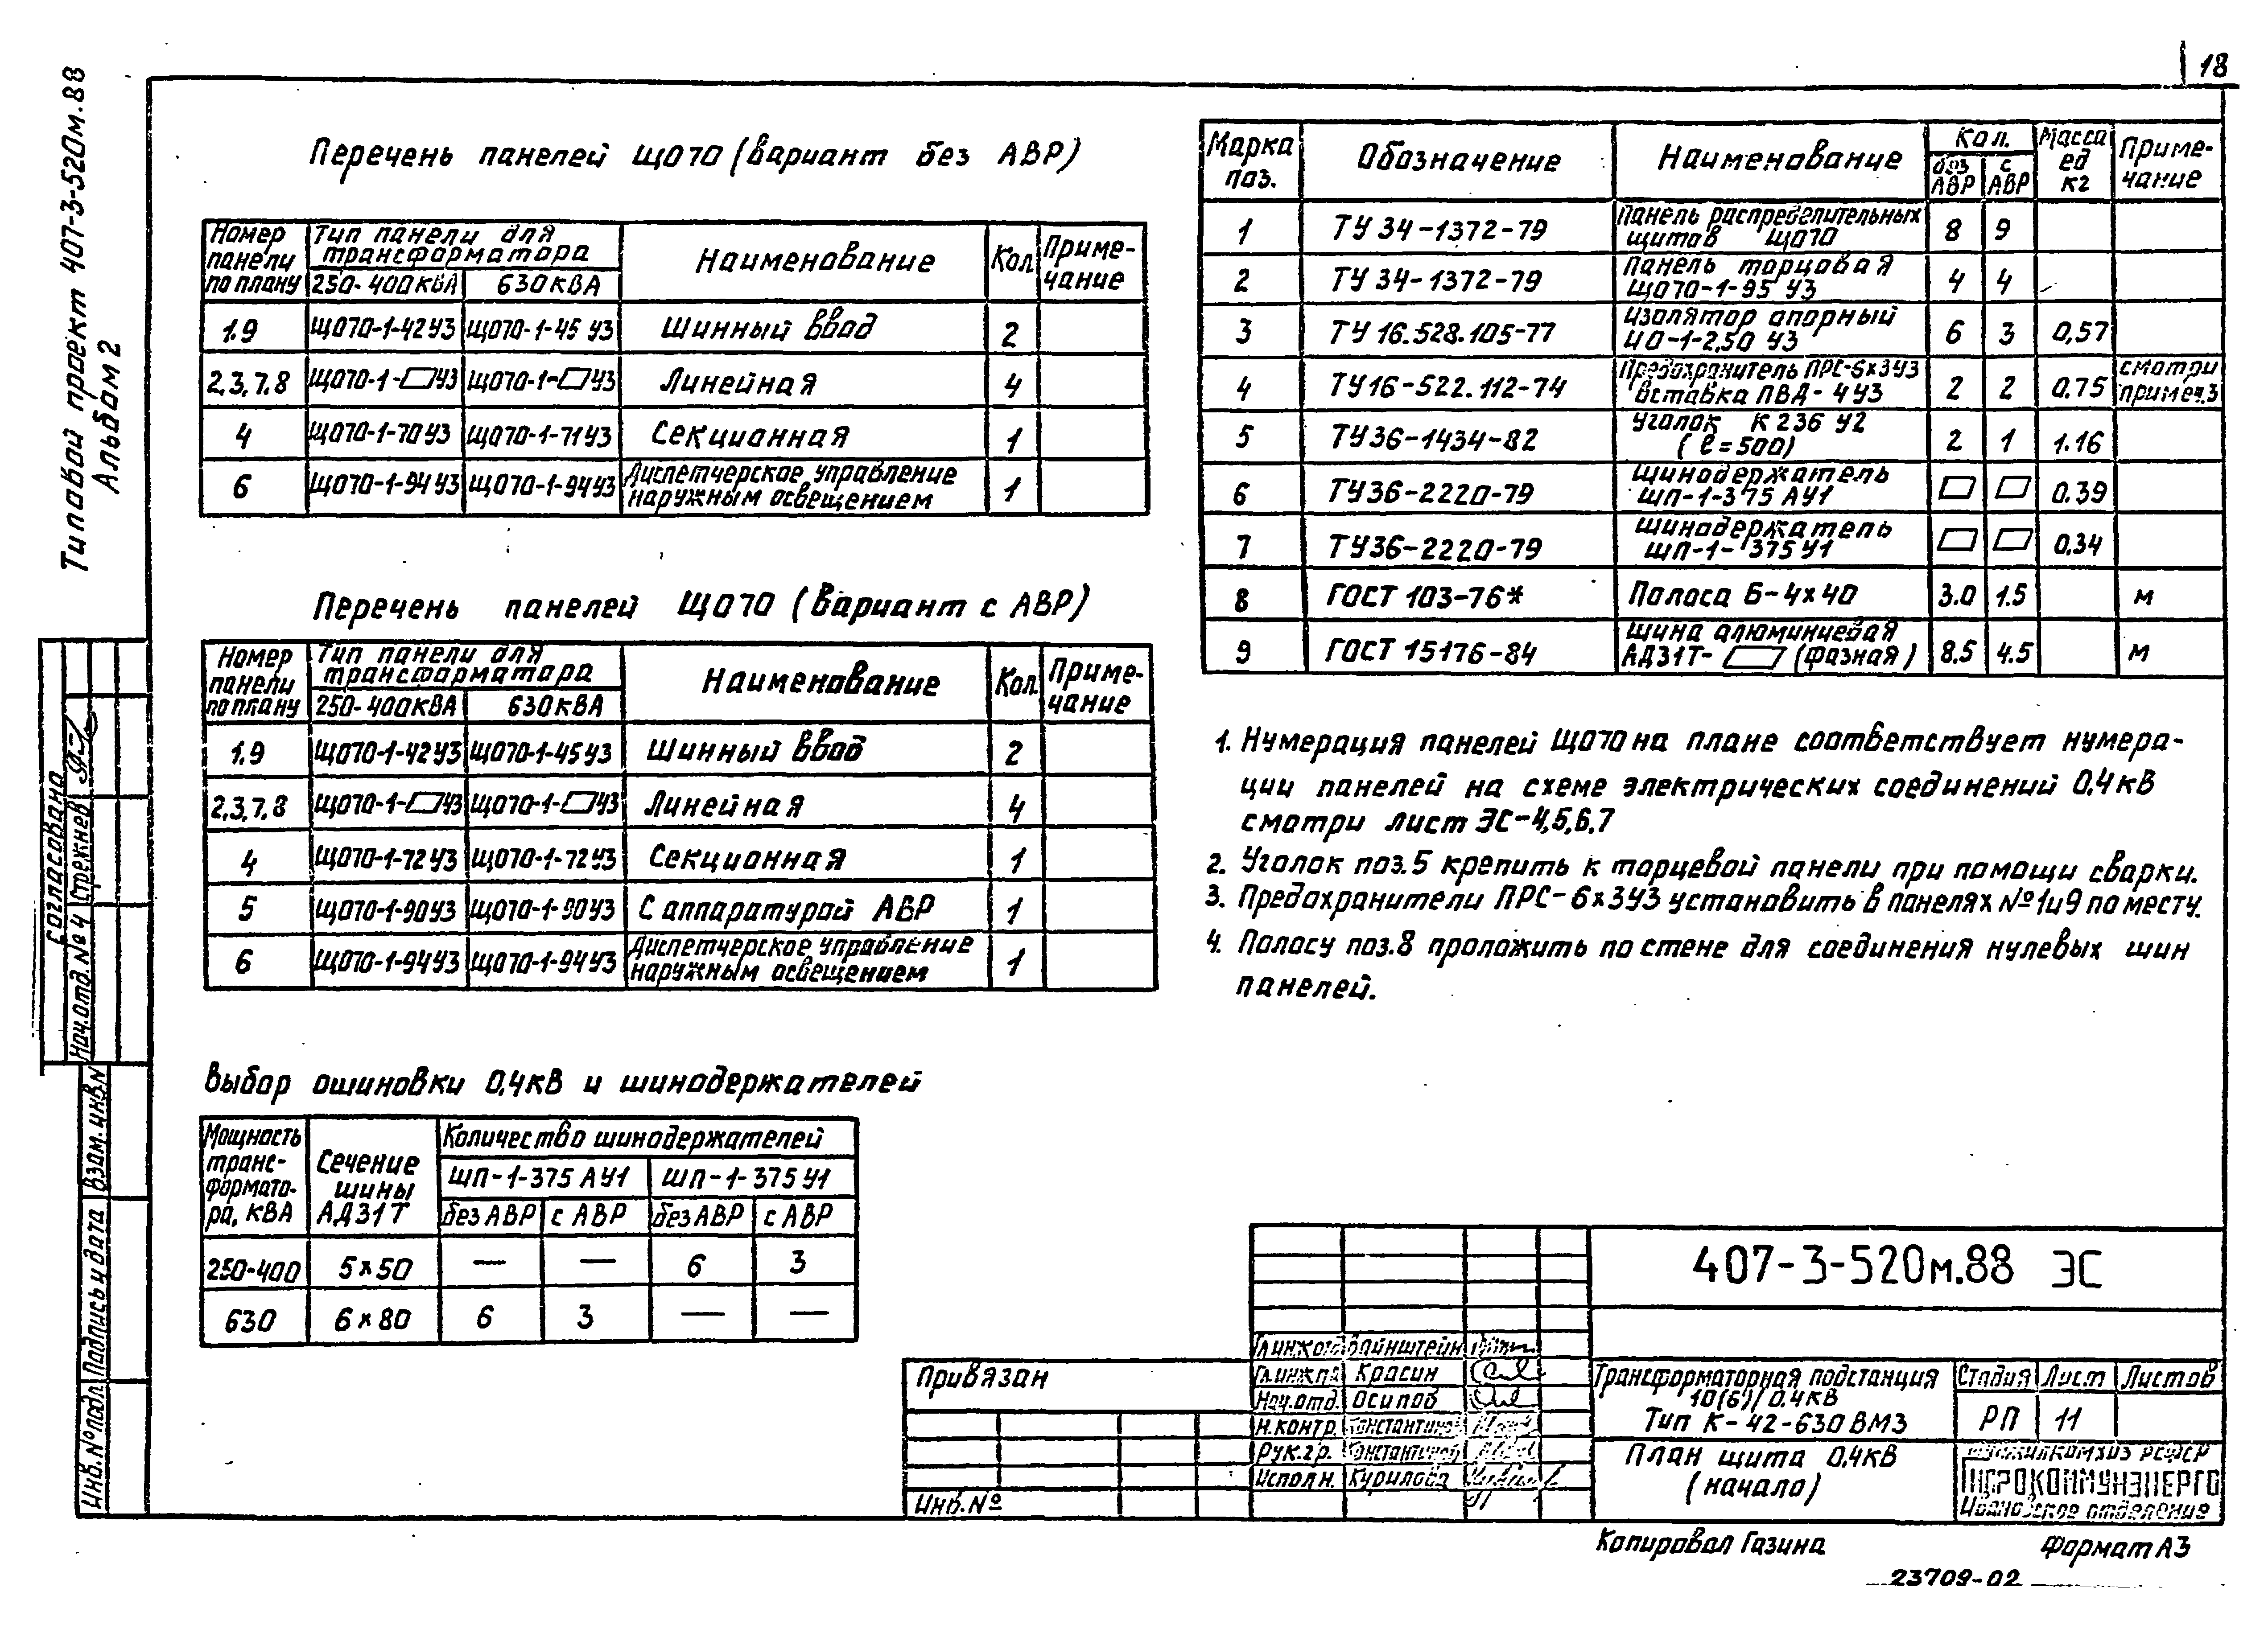 18
Типовой проект 407-3-520м.88
Альбом 2
Перечень панелей ЩО70 (вариант без АВР)
Номер панели по плану
Тип панели для трансформатора
250-400кВА
630кВА
Наименование
Кол
Приме-
чание
1.9 ЩО70-1-42У3 ЩО70-1-45У3 Шинный ввод 2
2,3,7,8 ЩО70-1-▱У3 ЩО70-1-▱У3 Линейная 4
4 ЩО70-1-70У3 ЩО70-1-71У3 Секционная 1
6 ЩО70-1-94У3 ЩО70-1-94У3 Диспетчерское управление наружным освещением 1
Перечень панелей ЩО70 (вариант с АВР)
Номер панели по плану
Тип панели для трансформатора
250-400кВА
630кВА
Наименование
Кол
Приме-
чание
1.9 ЩО70-1-42У3 ЩО70-1-45У3 Шинный ввод 2
2,3,7,8 ЩО70-1-▱У3 ЩО70-1-▱У3 Линейная 4
4 ЩО70-1-72У3 ЩО70-1-72У3 Секционная 1
5 ЩО70-1-90У3 ЩО70-1-90У3 С аппаратурой АВР 1
6 ЩО70-1-94У3 ЩО70-1-94У3 Диспетчерское управление наружным освещением 1
Выбор ошиновки 0,4кВ и шинодержателей
Мощность транс-
формато-
ра, кВА
Сечение шины АД31Т
Количество шинодержателей
ШП-1-375АУ1 ШП-1-375У1
без АВР с АВР без АВР с АВР
250-400 5x50 — — 6 3
630 6x80 6 3 — —
Марка поз.
Обозначение
Наименование
Кол.
без АВР
с АВР
Масса ед кг
Приме-
чание
1 ТУ 34-1372-79 Панель распределительных щитов ЩО70 8 9
2 ТУ 34-1372-79 Панель торцовая ЩО70-1-95 У3 4 4
3 ТУ 16.528.105-77 Изолятор опорный ИО-1-2,50 У3 6 3 0,57
4 ТУ16-522.112-74 Предохранитель ПРС-6x3У3 Вставка ПВД-4У3 2 2 0.75 смотри примеч.3
5 ТУ36-1434-82 Уголок К236 У2 (ℓ=500) 2 1 1.16
6 ТУ36-2220-79 Шинодержатель ШП-1-375АУ1 ▱ ▱ 0.39
7 ТУ36-2220-79 Шинодержатель ШП-1-375У1 ▱ ▱ 0.34
8 ГОСТ 103-76* Полоса Б-4x40 3.0 1.5 м
9 ГОСТ 15176-84 Шина алюминиевая АД31Т-▱ (фазная) 8.5 4.5 м
1. Нумерация панелей ЩО70 на плане соответствует нумера-
ции панелей на схеме электрических соединений 0,4кВ
смотри лист ЭС-4,5,6,7
2. Уголок поз.5 крепить к торцевой панели при помощи сварки.
3. Предохранители ПРС-6x3У3 установить в панелях №1и9 по месту.
4. Полосу поз.8 проложить по стене для соединения нулевых шин
панелей.
Согласовано
Нач.отд.№4 Стрежнев
Взам.инв.№
Подпись и дата
Инв.№подл.
Привязан
Инв.№
Вайнштейн
Красин
Нач.отд. Осипов
Н.контр.
Рук.гр.
Исполн. Курилова
407-3-520м.88 ЭС
Трансформаторная подстанция
10(6)/0.4кВ
Тип К-42-630ВМ3
Стадия Лист Листов
РП 11
План щита 0.4кВ
(начало)
отделение
Копировал Газина
Формат А3
23709-02